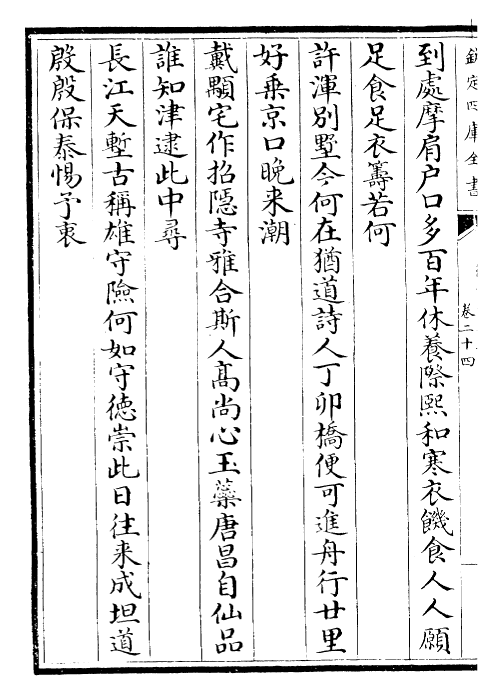 欽定四庫全書
卷二十四
到處摩肩户口多百年休養際熙和寒衣饑食人人願
足食足衣籌若何
許渾别墅今何在猶道詩人丁卯橋便可進舟行廿里
好乗京口晚来潮
戴顒宅作招隠寺雅合斯人髙尚心玉蘂唐昌自仙品
誰知津逮此中尋
長江天塹古稱雄守險何如守德崇此日往来成坦道
殷殷保泰惕予衷